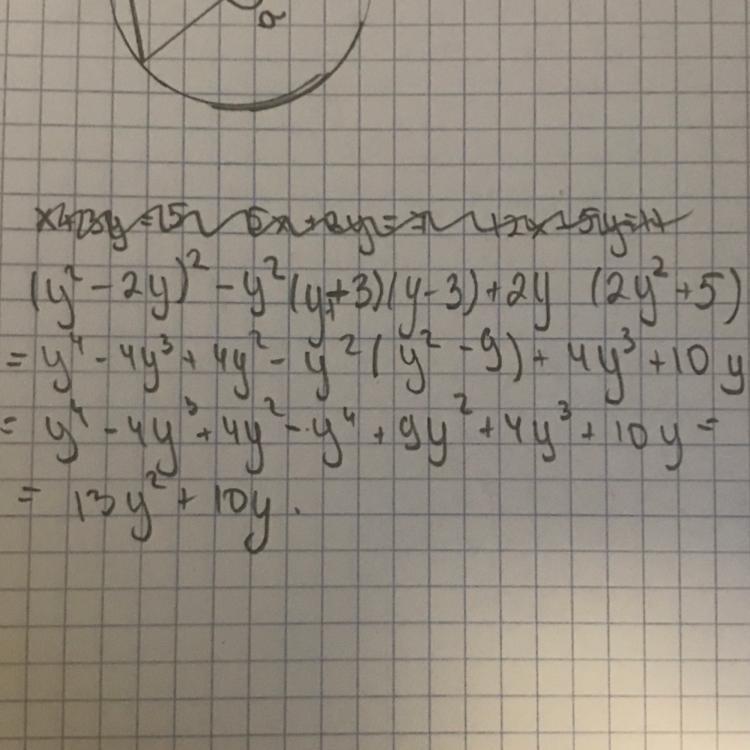 a
(y² - 2y)² - y²(y+3)(y-3) + 2y (2y² + 5)
= y⁴ - 4y³ + 4y² - y²(y² - 9) + 4y³ + 10y
= y⁴ - 4y³ + 4y² - y⁴ + 9y² + 4y³ + 10y =
= 13y² + 10y.